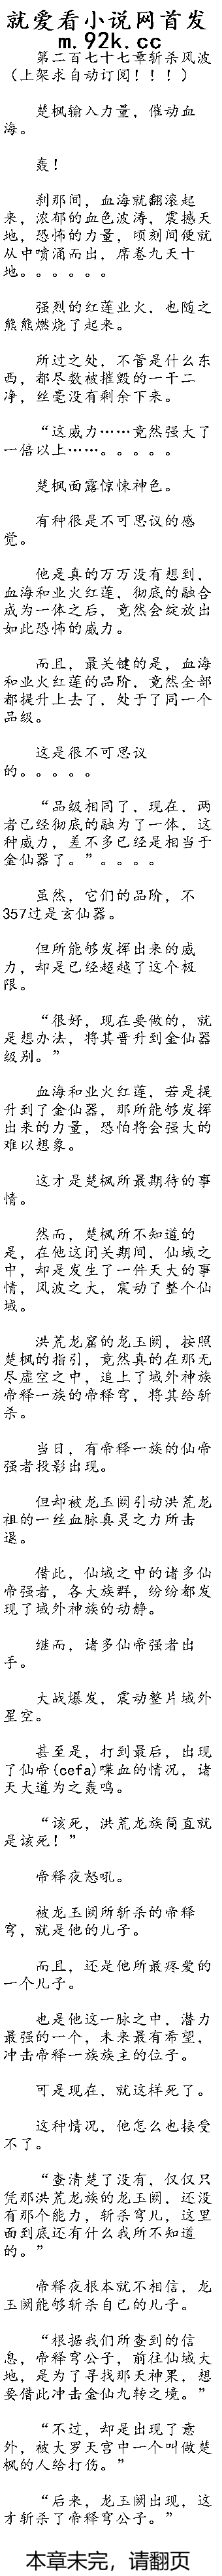 就爱看小说网首发
m.92k.cc
第二百七十七章斩杀风波
（上架求自动订阅！！！）
楚枫输入力量，催动血
海。
轰！
刹那间，血海就翻滚起
来，浓郁的血色波涛，震撼天
地，恐怖的力量，顷刻间便就
从中喷涌而出，席卷九天十
地。。。。。。
强烈的红莲业火，也随之
熊熊燃烧了起来。
所过之处，不管是什么东
西，都尽数被摧毁的一干二
净，丝毫没有剩余下来。
“这威力……竟然强大了
一倍以上……。。。。。
楚枫面露惊悚神色。
有种很是不可思议的感
觉。
他是真的万万没有想到，
血海和业火红莲，彻底的融合
成为一体之后，竟然会绽放出
如此恐怖的威力。
而且，最关键的是，血海
和业火红莲的品阶，竟然全部
都提升上去了，处于了同一个
品级。
这是很不可思议
的。。。。。
“品级相同了，现在，两
者已经彻底的融为了一体，这
种威力，差不多已经是相当于
金仙器了。”。。。。
虽然，它们的品阶，不
357过是玄仙器。
但所能够发挥出来的威
力，却是已经超越了这个极
限。
“很好，现在要做的，就
是想办法，将其晋升到金仙器
级别。”
血海和业火红莲，若是提
升到了金仙器，那所能够发挥
出来的力量，恐怕将会强大的
难以想象。
这才是楚枫所最期待的事
情。
然而，楚枫所不知道的
是，在他这闭关期间，仙域之
中，却是发生了一件天大的事
情，风波之大，震动了整个仙
域。
洪荒龙窟的龙玉阙，按照
楚枫的指引，竟然真的在那无
尽虚空之中，追上了域外神族
帝释一族的帝释穹，将其给斩
杀。
当日，有帝释一族的仙帝
强者投影出现。
但却被龙玉阙引动洪荒龙
祖的一丝血脉真灵之力所击
退。
借此，仙域之中的诸多仙
帝强者，各大族群，纷纷都发
现了域外神族的动静。
继而，诸多仙帝强者出
手。
大战爆发，震动整片域外
星空。
甚至是，打到最后，出现
了仙帝(cefa)喋血的情况，诸
天大道为之轰鸣。
“该死，洪荒龙族简直就
是该死！”
帝释夜怒吼。
被龙玉阙所斩杀的帝释
穹，就是他的儿子。
而且，还是他所最疼爱的
一个儿子。
也是他这一脉之中，潜力
最强的一个，未来最有希望，
冲击帝释一族族主的位子。
可是现在，就这样死了。
这种情况，他怎么也接受
不了。
“查清楚了没有，仅仅只
凭那洪荒龙族的龙玉阙，还没
有那个能力，斩杀穹儿，这里
面到底还有什么我所不知道
的。”
帝释夜根本就不相信，龙
玉阙能够斩杀自己的儿子。
“根据我们所查到的信
息，帝释穹公子，前往仙域大
地，是为了寻找那天神果，想
要借此冲击金仙九转之境。”
“不过，却是出现了意
外，被大罗天宫中一个叫做楚
枫的人给打伤。”
“后来，龙玉阙出现，这
才斩杀了帝释穹公子。”
本章未完，请翻页